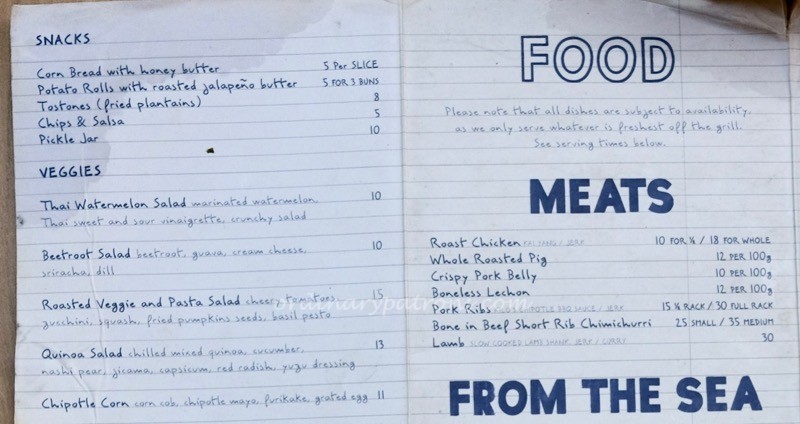 SNACKS
Corn Bread with honey butter 5 Per SLICE
Potato Rolls with roasted jalapeño butter 5 FOR 3 BUNS
Tostones (fried plantains) 8
Chips & Salsa 5
Pickle Jar 10
VEGGIES
Thai Watermelon Salad marinated watermelon, 10
Thai sweet and sour vinaigrette, crunchy salad
Beetroot Salad beetroot, guava, cream cheese, 10
sriracha, dill
Roasted Veggie and Pasta Salad cherry tomatoes, 15
zucchini, squash, fried pumpkins seeds, basil pesto
Quinoa Salad chilled mixed quinoa, cucumber, 13
nashi pear, jicama, capsicum, red radish, yuzu dressing
Chipotle Corn corn cob, chipotle mayo, furikake, grated egg 11
FOOD
Please note that all dishes are subject to availability,
as we only serve whatever is freshest off the grill.
See serving times below.
MEATS
Roast Chicken KAI YANG / JERK 10 FOR ½ / 18 FOR WHOLE
Whole Roasted Pig 12 PER 100g
Crispy Pork Belly 10 PER 100g
Boneless Lechon 12 PER 100g
Pork Ribs CHIPOTLE BBQ SAUCE / JERK 15 ½ RACK / 30 FULL RACK
Bone in Beef Short Rib Chimichurri 25 SMALL / 35 MEDIUM
Lamb SLOW COOKED LAMB SHANK, JERK / CURRY 30
FROM THE SEA